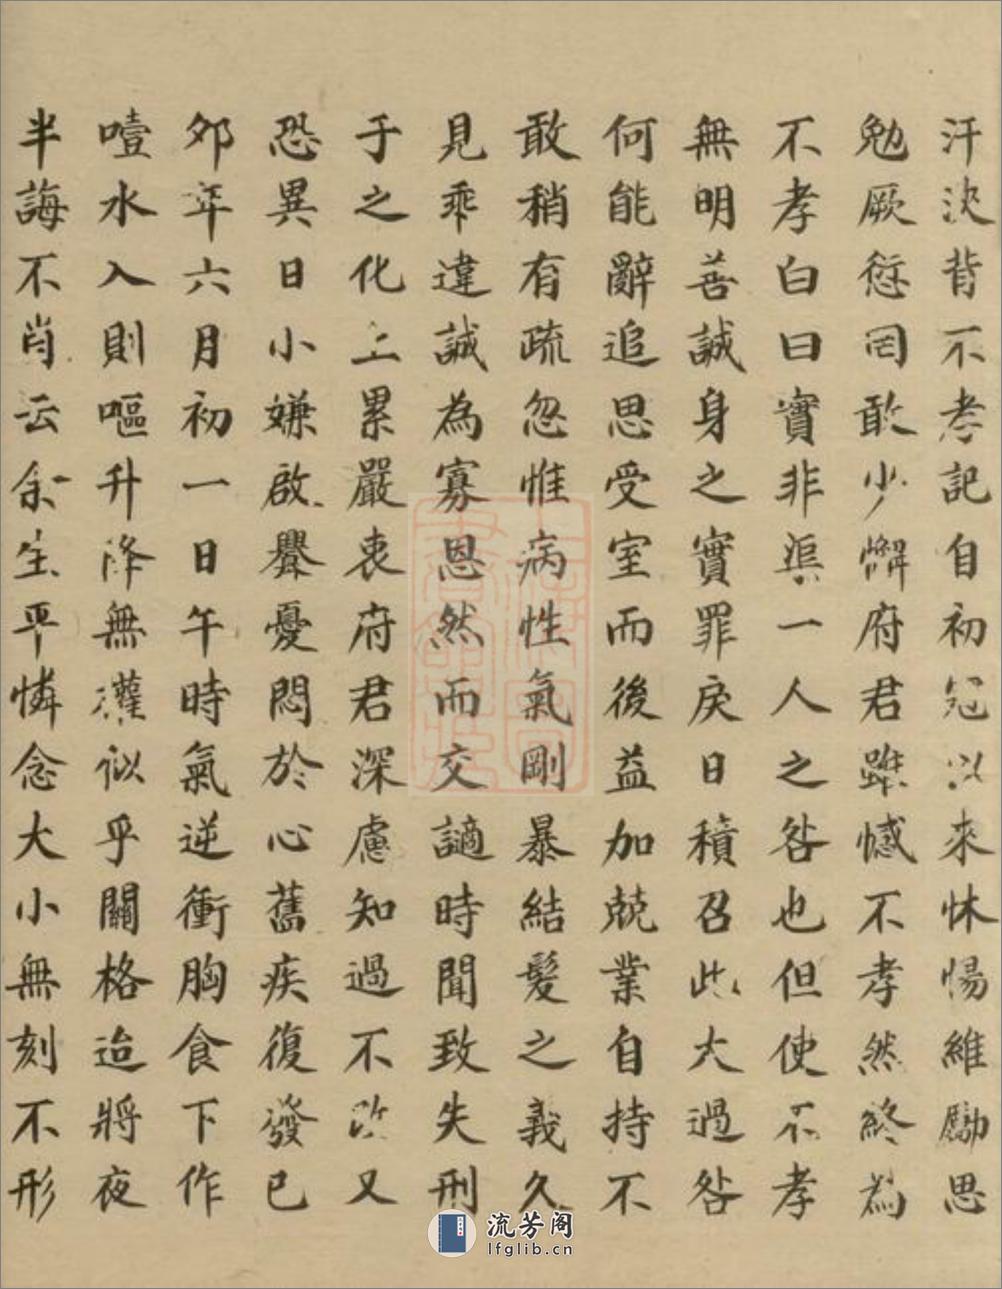 汗浹背不孝記自初冠以來怵惕維勵思
勉厥愆罔敢少懈府君雖憾不孝然終為
不孝白曰實非渠一人之咎也但使不孝
無明善誠身之實罪戾日積召此大過咎
何能辭追思受室而後益加兢業自持不
敢稍有疏忽惟病性氣剛暴結髮之義久
見乖違誠為寡恩然而交謫時聞致失刑
于之化上累嚴衷府君深慮知過不改又
恐異日小嫌啟釁憂悶於心舊疾復發已
夘年六月初一日午時氣逆衝胸食下作
噎水入則嘔升降無灌似乎關格迨將夜
半誨不肖云余生平憐念大小無刻不形
流芳阁
lfglib.cn